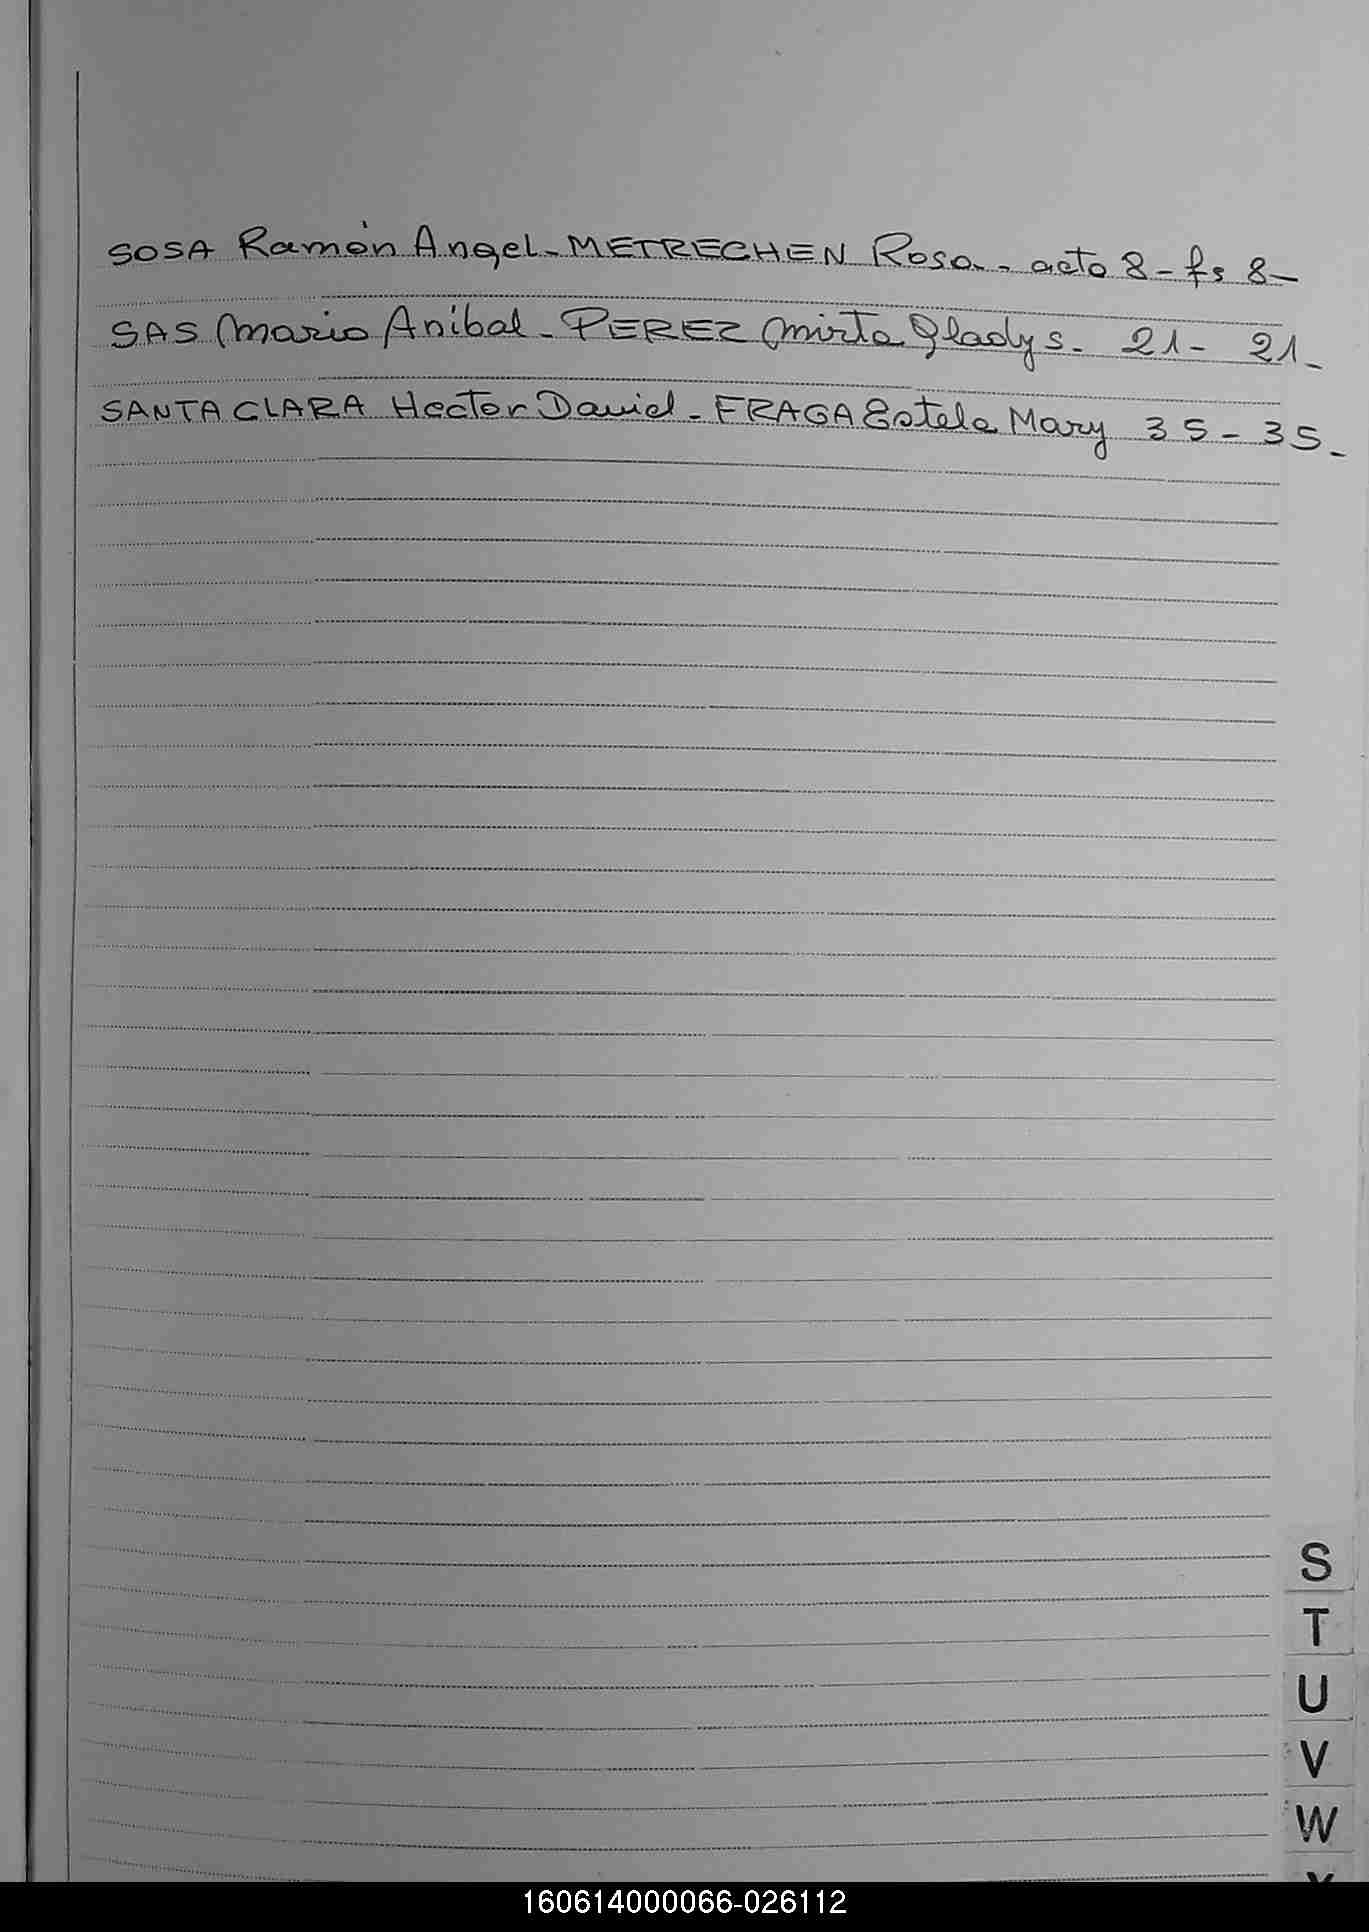 SOSA Ramón Angel - METRECHEN Rosa - acta 8 - fs 8 -
SAS Mario Anibal - PEREZ Mirta Gladys - 21 - 21 -
SANTACLARA Hector David - FRAGA Estela Mary 35 - 35 -
S
T
U
V
W
160614000066-026112